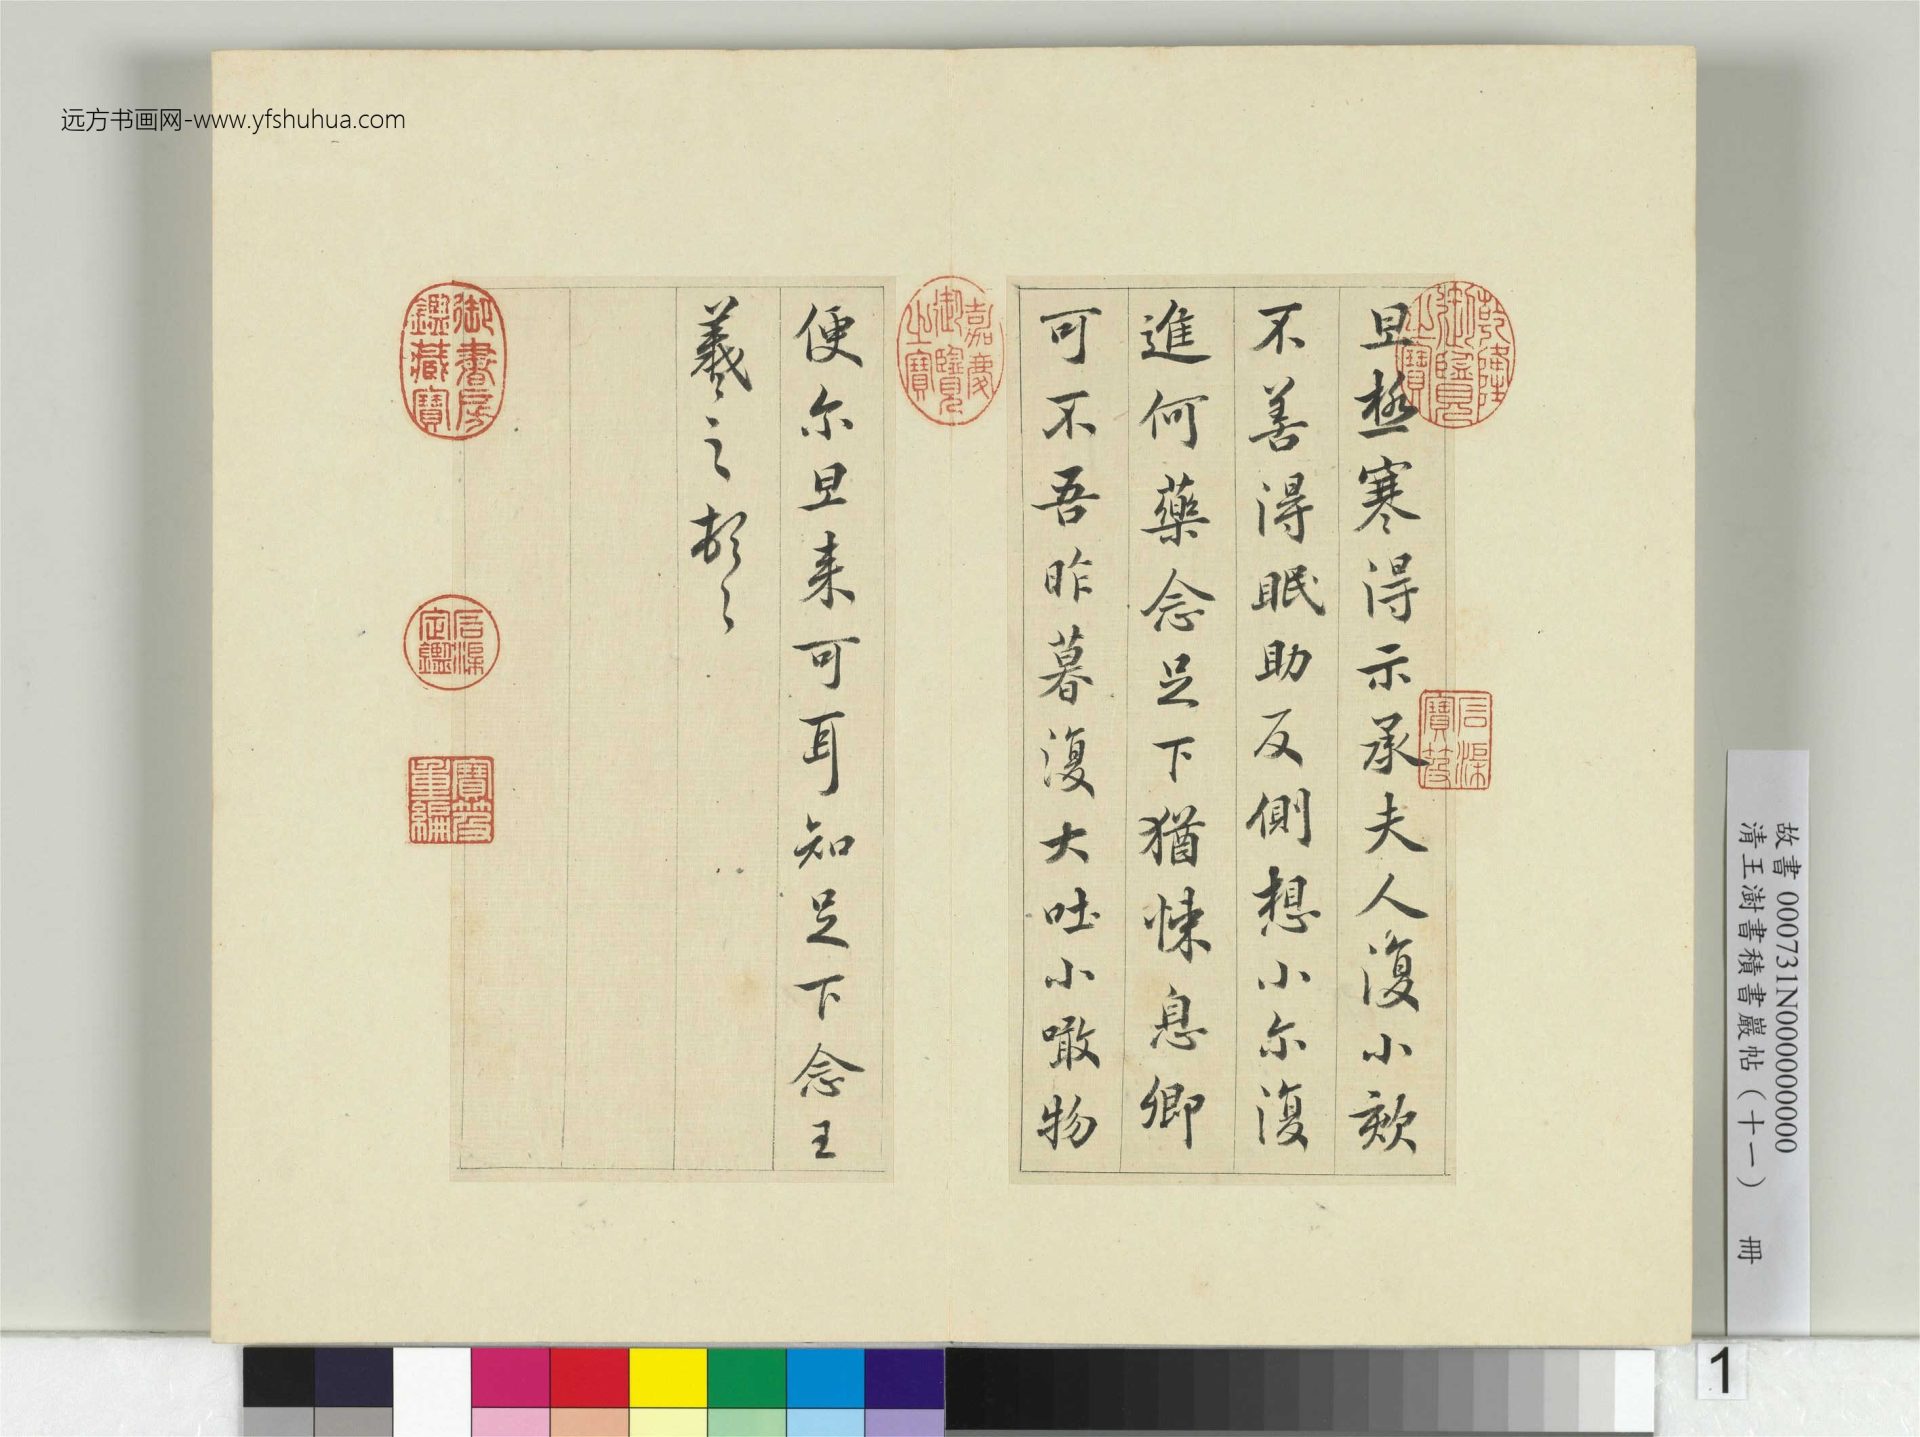 远方书画网-www.yfshuhua.com
旦極寒得示承夫人復小欬
不善得眠助反側想小尔復
進何藥念足下猶悚息卿
可不吾昨暮復大吐小噉物
便尔旦来可耳知足下念王
羲之頓之
乾隆御覽之寶
石渠寶笈
嘉慶御覽之寶
御書房鑑藏寶
石渠定鑑
寶笈重編
故書000731N000000000
清王澍書積書巖帖（十一） 冊
1